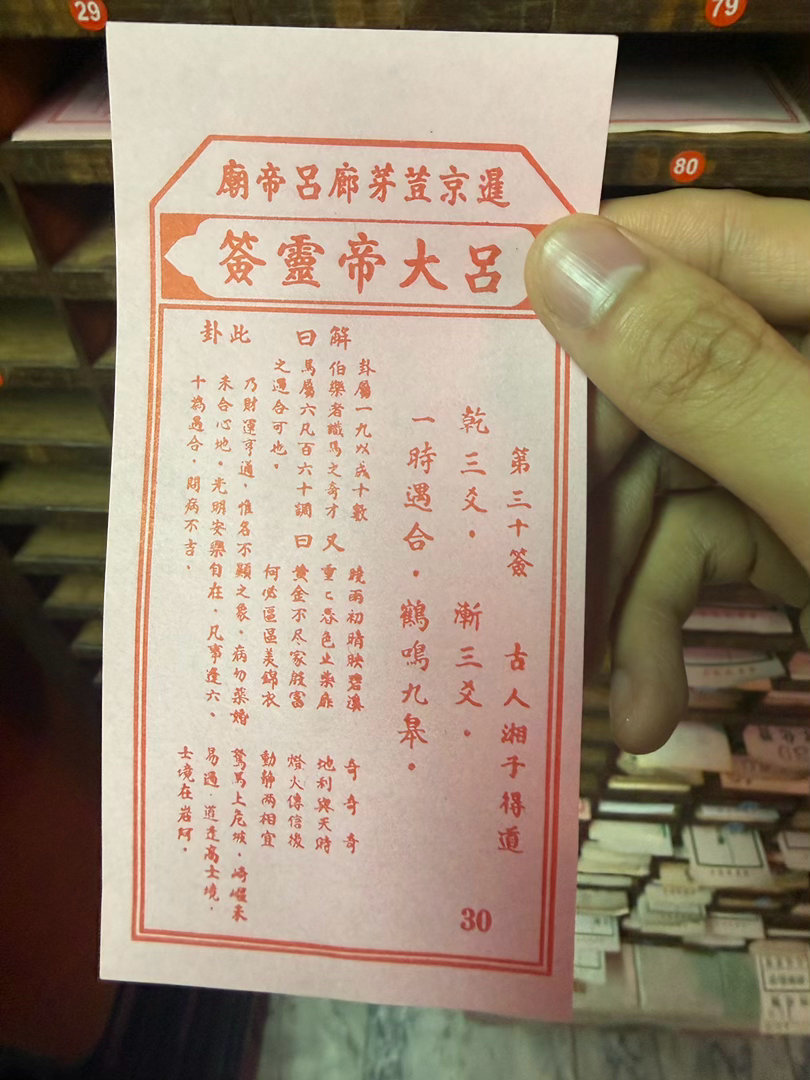 暹京荳芽廊呂帝廟
呂大帝靈簽
第三十簽 古人湘子得道
乾三爻。 漸三爻。
一時遇合。鶴鳴九皋。
解曰
卦屬一九以成十數
伯樂者識馬之奇才
馬屬六凡百六十調
之遇合可也。
又曰
曉雨初晴映碧溪
重々春色上柴扉
黃金不尽家殷富
何必區區羨錦衣
奇奇奇
地利與天時
燈火傳信後
動靜兩相宜
此卦
乃財運亨通。惟名不顯之象。病勿藥婚
未合心地。光明安樂自在。凡事逢六。
十為遇合。問病不吉。
駑馬上危坡。崎嶇未
易過。逍遙高士境。
士境在岩阿。
30
29
79
80